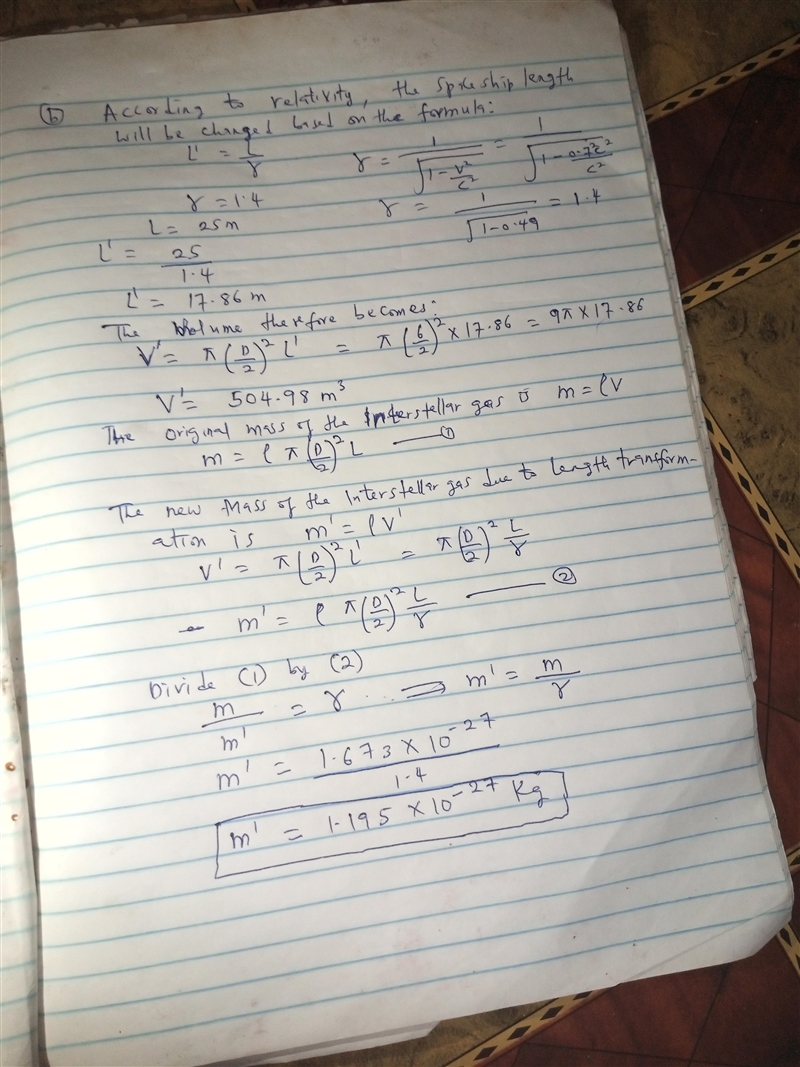 (b) According to relativity, the Spaceship length
will be changed based on the formula:
L' = L/γ    γ = 1/√(1 - v²/c²) = 1/√(1 - 0.7²c²/c²)
γ = 1.4    γ = 1/√(1-0.49) = 1.4
L = 25m
L' = 25/1.4
L' = 17.86 m
The Volume therefore becomes:
V' = π(D/2)² L' = π(6/2)² × 17.86 = 9π × 17.86
V' = 504.98 m³
The original mass of the Interstellar gas is m = ρV
m = ρ π(D/2)² L —— ①
The new Mass of the Interstellar gas due to length transform-
ation is m' = ρV'
V' = π(D/2)² L' = π(D/2)² L/γ
- m' = ρ π(D/2)² L/γ —— ②
Divide (1) by (2)
m/m' = γ ... ⟹ m' = m/γ
m' = 1.673 × 10⁻²⁷/1.4
m' = 1.195 × 10⁻²⁷ Kg